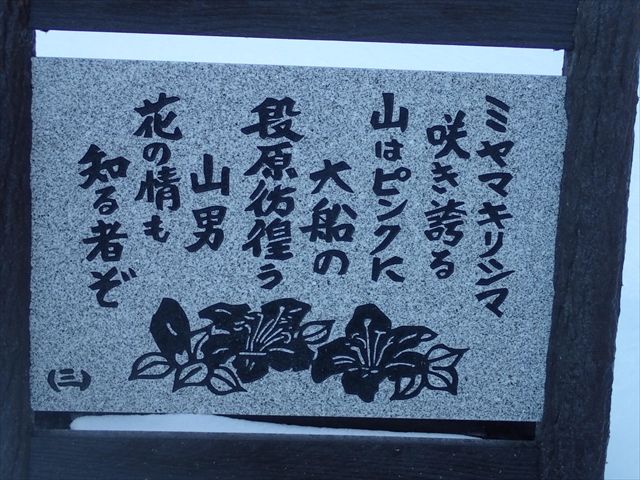 ミヤマキリシマ
咲き誇る
山はピンクに
大船の
段原彷徨う
山男
花の情も
知る者ぞ
(三)